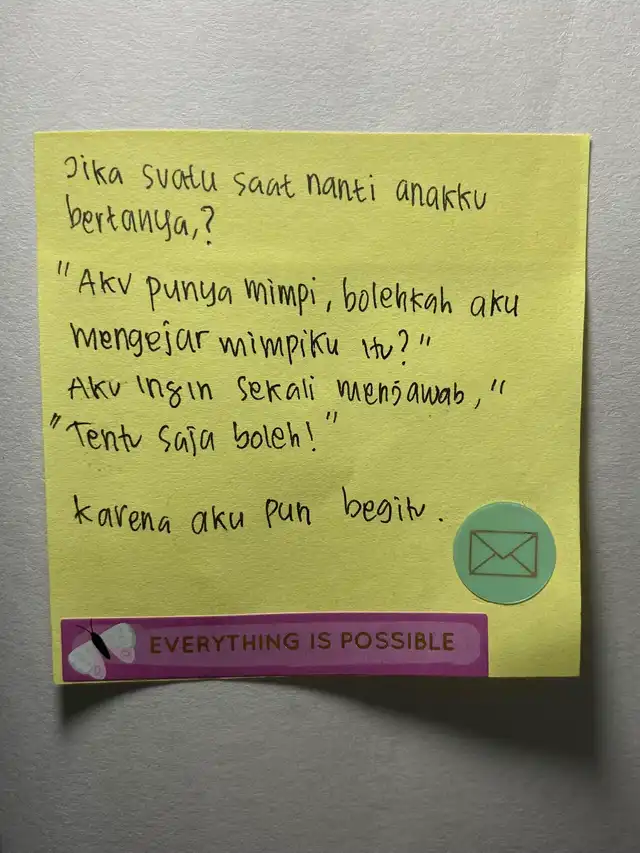 Jika suatu saat nanti anakku
bertanya,?
"Aku punya mimpi, bolehkah aku
mengejar mimpiku itu?"
Aku ingin sekali menjawab,"
"Tentu saja boleh!"
karena aku pun begitu.
EVERYTHING IS POSSIBLE